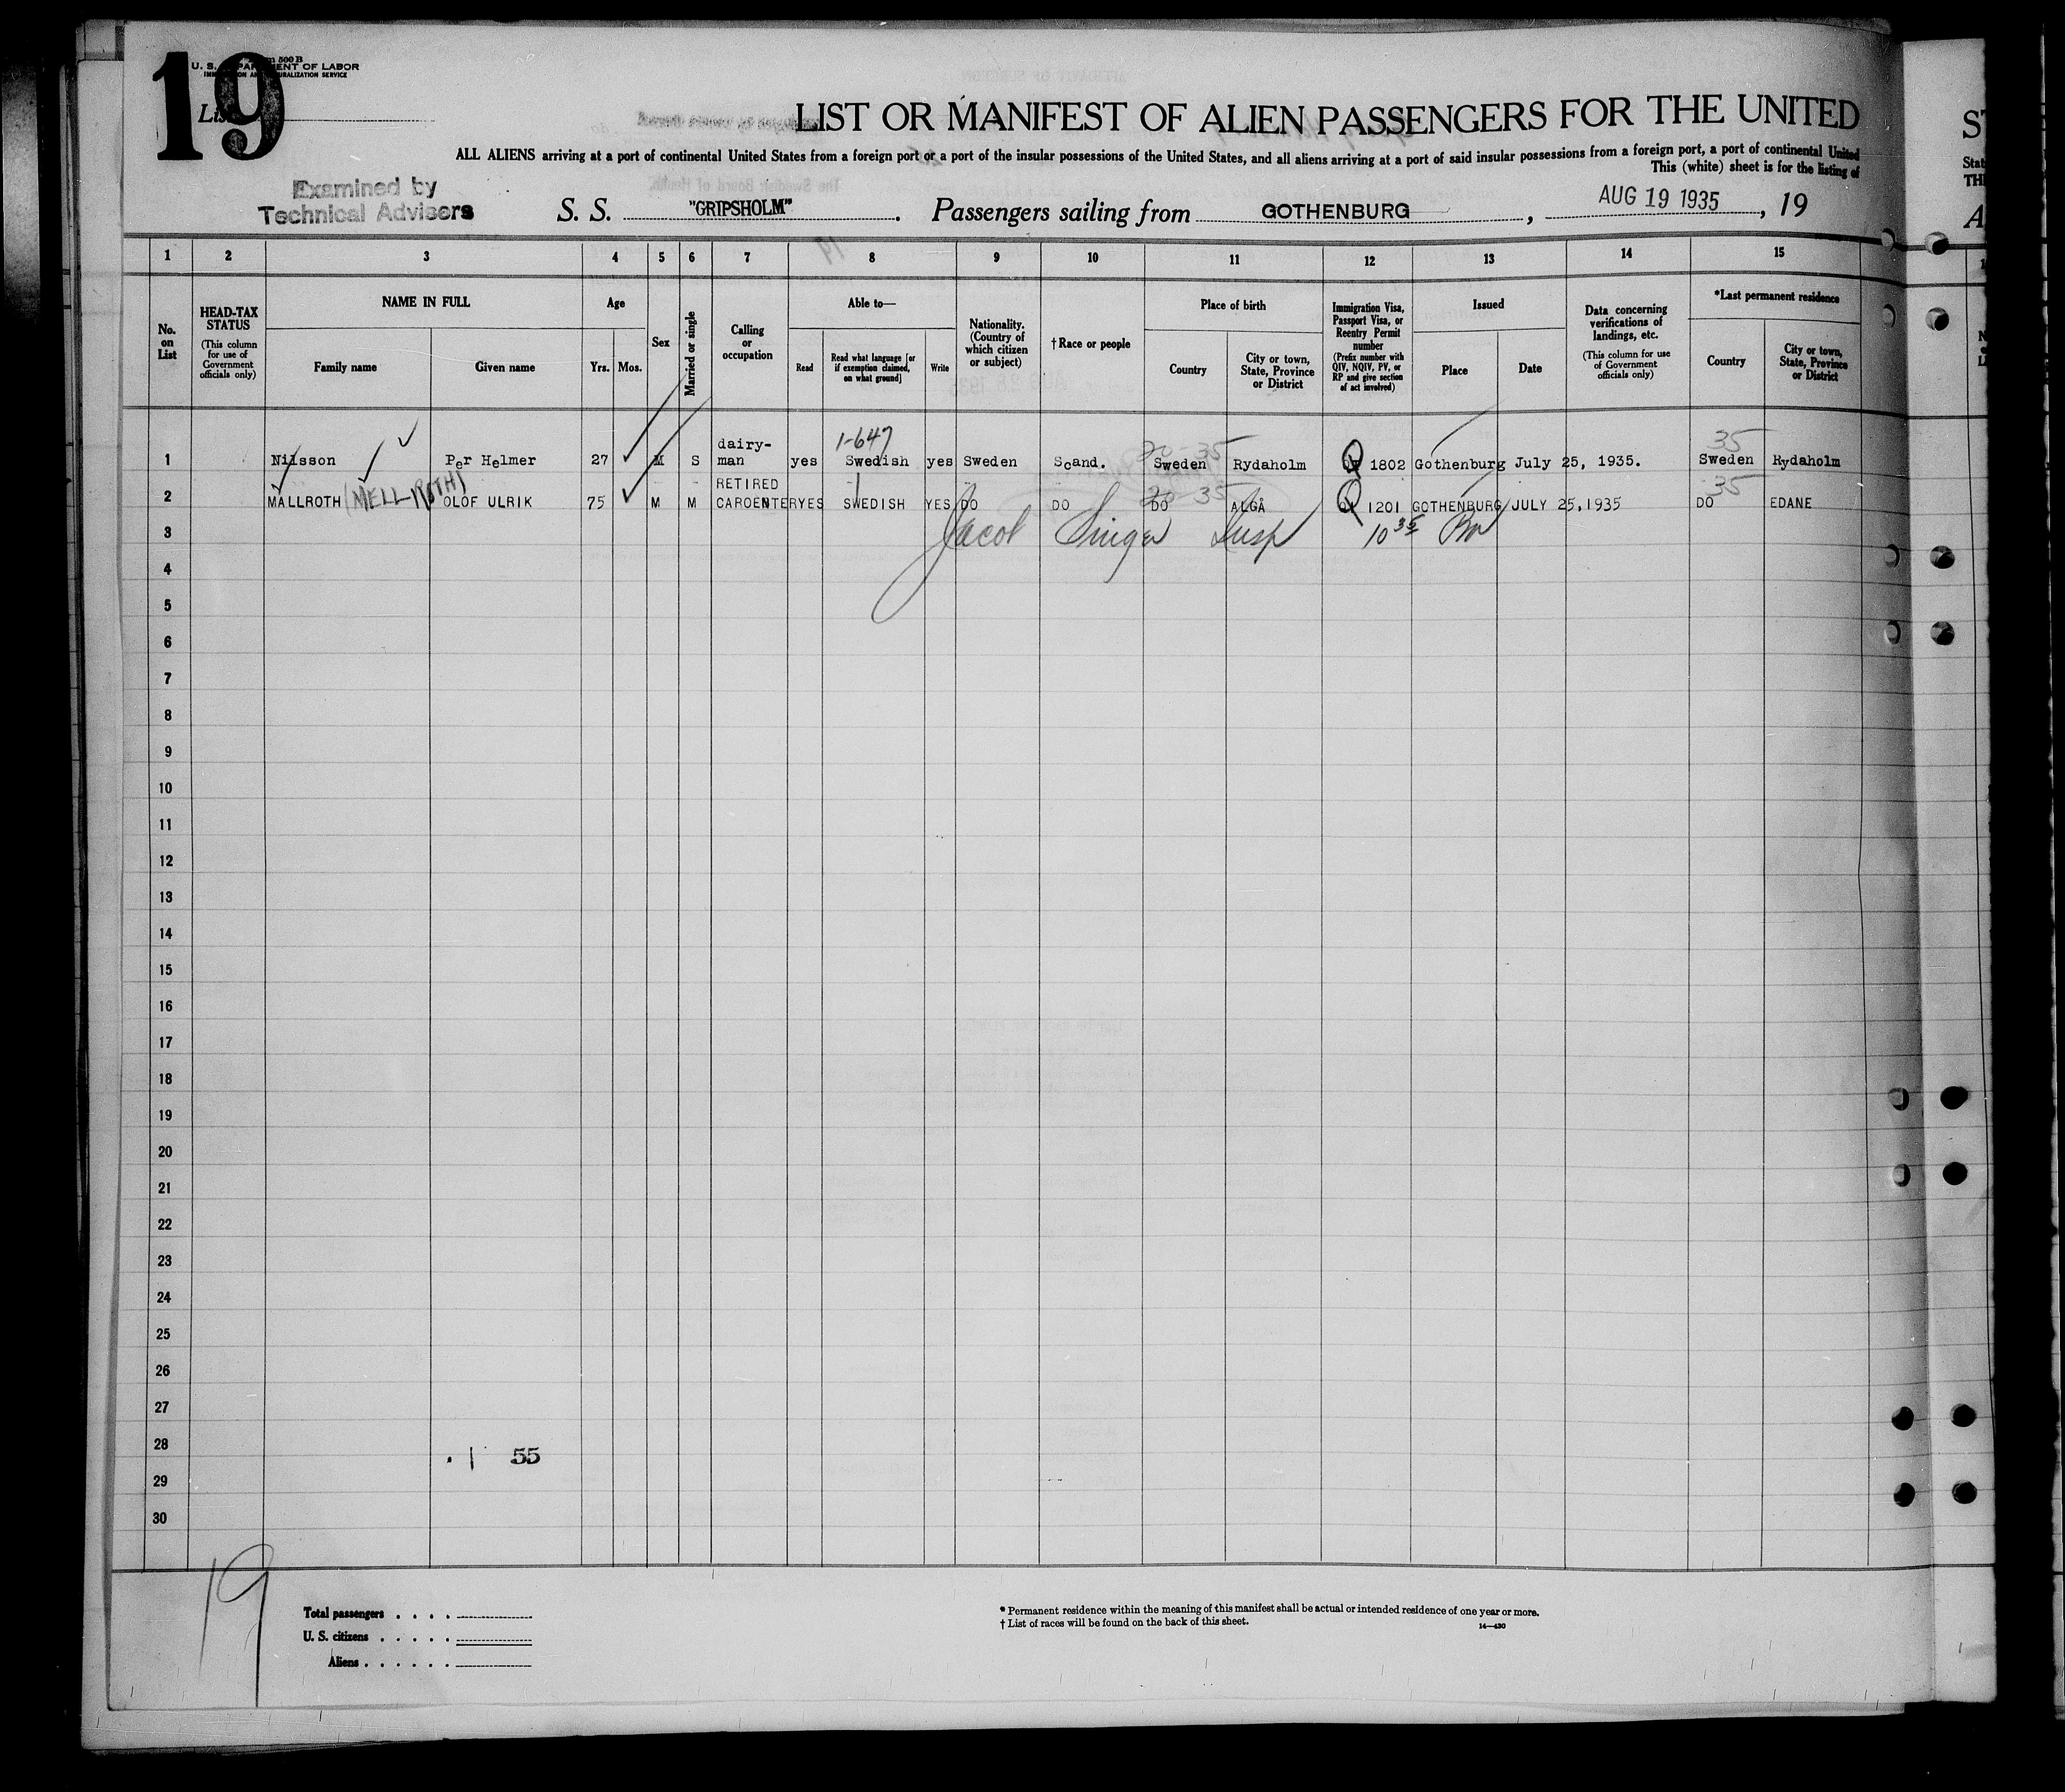 19
Form 500 B
U. S. DEPARTMENT OF LABOR
IMMIGRATION AND NATURALIZATION SERVICE
List
LIST OR MANIFEST OF ALIEN PASSENGERS FOR THE UNITED
ALL ALIENS arriving at a port of continental United States from a foreign port or a port of the insular possessions of the United States, and all aliens arriving at a port of said insular possessions from a foreign port, a port of continental United
This (white) sheet is for the listing of
Examined by
Technical Advisers
S. S. "GRIPSHOLM". Passengers sailing from GOTHENBURG, AUG 19 1935, 19
1 2 3 4 5 6 7 8 9 10 11 12 13 14 15
No. on List
HEAD-TAX STATUS (This column for use of Government officials only)
NAME IN FULL
Family name
Given name
Age
Yrs.
Mos.
Sex
Married or single
Calling or occupation
Able to—
Read
Read what language [or if exemption claimed, on what ground]
Write
Nationality. (Country of which citizen or subject)
†Race or people
Place of birth
Country
City or town, State, Province or District
Immigration Visa, Passport Visa, or Reentry Permit number (Prefix number with QIV, NQIV, PV, or RP and give section of act involved)
Issued
Place
Date
Data concerning verifications of landings, etc. (This column for use of Government officials only)
*Last permanent residence
Country
City or town, State, Province or District
1-647
20-35
35
1 Nilsson Per Helmer 27 M S dairy-man yes Swedish yes Sweden Scand. Sweden Rydaholm Q 1802 Gothenburg July 25, 1935. Sweden Rydaholm
20 35
35
2 MALLROTH (MELL-ROTH) OLOF ULRIK 75 M M RETIRED CAROENTER YES SWEDISH YES DO DO DO ALGÅ Q 1201 GOTHENBURG JULY 25,1935 DO EDANE
3 Jacob Singer Insp 10 35
4
5
6
7
8
9
10
11
12
13
14
15
16
17
18
19
20
21
22
23
24
25
26
27
28
55
29
30
19
Total passengers . . . .
U. S. citizens . . . . .
Aliens . . . . . .
* Permanent residence within the meaning of this manifest shall be actual or intended residence of one year or more.
† List of races will be found on the back of this sheet.
14—430